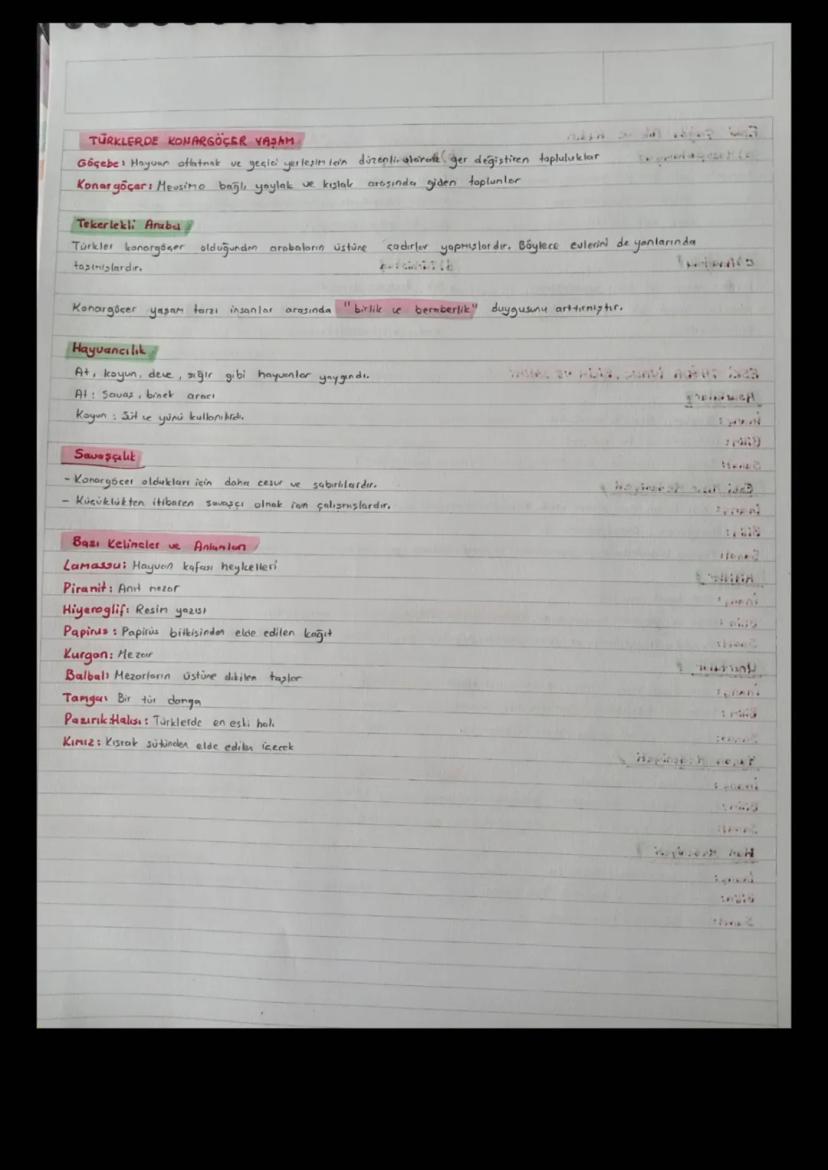 TÜRKLERDE KONARGÖÇER YAŞAM
Göçebe: Hayvan otlatmak ve geçici yerleşim için düzenli olarak yer değiştiren topluluklar
Konargöçer: Mevsime bağlı yaylak ve kışlak arasında giden toplumlar
Tekerlekli Araba
Türkler konargöçer olduğundan arabaların üstüne çadırlar yapmışlardır. Böylece evlerini de yanlarında
taşımışlardır.
Konargöçer yaşam tarzı insanlar arasında "birlik ve beraberlik" duygusunu arttırmıştır.
Hayvancılık
At, koyun, deve, sığır gibi hayvanlar yaygındı.
At: Savaş, binek aracı
Koyun: Süt ve yünü kullanılırdı.
Savaşçılık
- Konargöçer oldukları için daha cesur ve sabırlılardır.
- Küçüklükten itibaren savaşçı olmak için çalışmışlardır.
Bazı Kelimeler ve Anlamları
Lamassu: Hayvan kafası heykelleri
Piramit: Anıt mezar
Hiyeroglif: Resim yazısı
Papirus: Papirüs bitkisinden elde edilen kağıt
Kurgan: Mezar
Balbal: Mezarların üstüne dikilen taşlar
Tamga: Bir tür damga
Pazırık Halısı: Türklerde en eski halı
Kımız: Kısrak sütünden elde edilen içecek